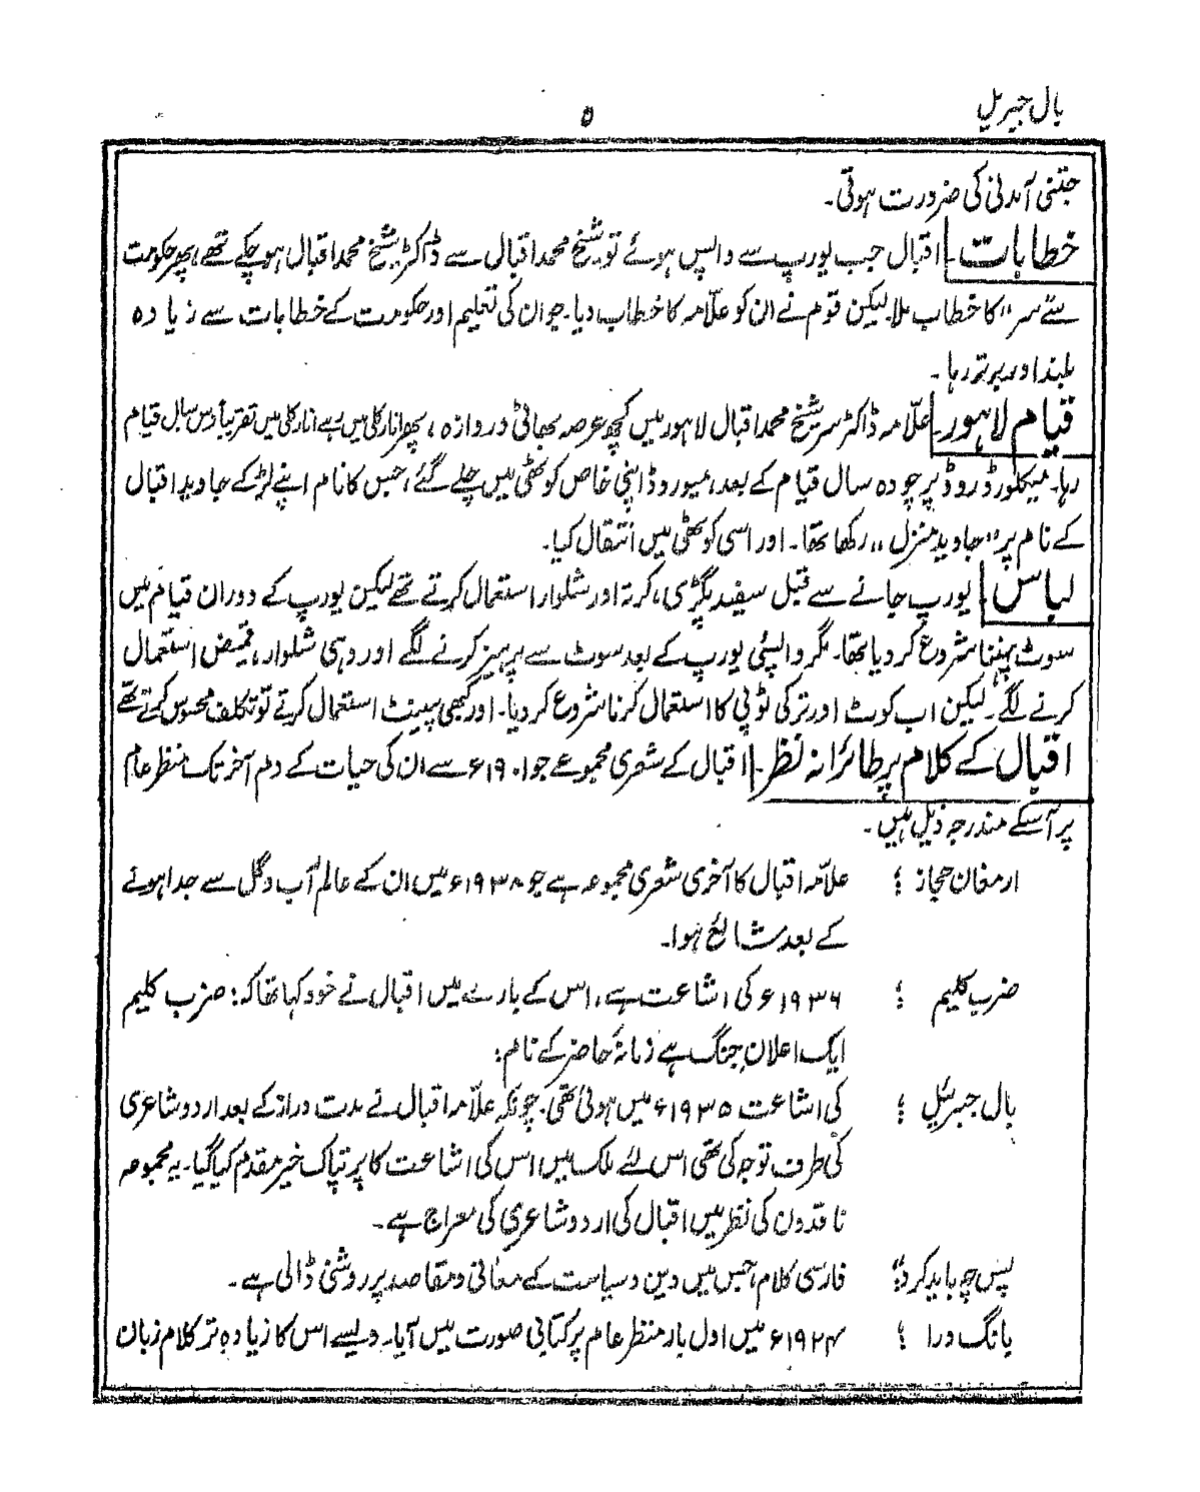 بال جبریل
۵
جتنی آمدنی کی ضرورت ہوتی۔
خطابات۔ اقبال جب یورپ سے واپس ہوئے تو شیخ محمد اقبال سے ڈاکٹر شیخ محمد اقبال ہو چکے تھے، پھر حکومت
سے "سر" کا خطاب ملا۔ لیکن قوم نے ان کو علّامہ کا خطاب دیا۔ جو ان کی تعلیم اور حکومت کے خطابات سے زیادہ
بلند اور برتر رہا۔
قیام لاہور۔ علّامہ ڈاکٹر سر شیخ محمد اقبال لاہور میں کچھ عرصہ بھاٹی دروازہ، پھر انارکلی میں رہے انارکلی میں تقریباً دس سال قیام
رہا۔ میکلوڈ روڈ پر چودہ سال قیام کے بعد، میو روڈ اپنی خاص کوٹھی میں چلے گئے، جس کا نام اپنے لڑکے جاوید اقبال
کے نام پر "جاوید منزل" رکھا تھا۔ اور اسی کوٹھی میں انتقال کیا۔
لباس۔ یورپ جانے سے قبل سفید پگڑی، کرتہ اور شلوار استعمال کرتے تھے لیکن یورپ کے دوران قیام میں
سوٹ پہننا شروع کر دیا تھا۔ مگر واپسئی یورپ کے بعد سوٹ سے پرہیز کرنے لگے اور وہی شلوار، قمیض استعمال
کرنے لگے۔ لیکن اب کوٹ اور ترکی ٹوپی کا استعمال کرنا شروع کر دیا۔ اور کبھی پینٹ استعمال کرتے تو تکلف محسوس کرتے تھے
اقبال کے کلام پر طائرانہ نظر۔ اقبال کے شعری مجموعے جو ۱۹۰۱ء سے ان کی حیات کے دم آخر تک منظر عام
پر آسکے مندرجہ ذیل ہیں۔
ارمغان حجاز ؛ علامہ اقبال کا آخری شعری مجموعہ ہے جو ۱۹۳۸ء میں ان کے عالم آب و گل سے جدا ہونے
کے بعد شائع ہوا۔
ضرب کلیم ؛ ۱۹۳۶ء کی اشاعت ہے، اس کے بارے میں اقبال نے خود کہا تھا کہ: ضرب کلیم
ایک اعلان جنگ ہے زمانۂ حاضر کے نام:
بال جبرئیل ؛ کی اشاعت ۱۹۳۵ء میں ہوئی تھی۔ چونکہ علّامہ اقبال نے مدت دراز کے بعد اردو شاعری
کی طرف توجہ کی تھی اس لئے ملک میں اس کی اشاعت کا پرتپاک خیر مقدم کیا گیا۔ یہ مجموعہ
ناقدوں کی نظر میں اقبال کی اردو شاعری کی معراج ہے۔
پس چہ باید کرد؛ فارسی کلام، جس میں دین و سیاست کے معانی و مقاصد پر روشنی ڈالی ہے۔
بانگ درا ؛ ۱۹۲۴ء میں اول بار منظر عام پر کتابی صورت میں آیا۔ ویسے اس کا زیادہ تر کلام زبان